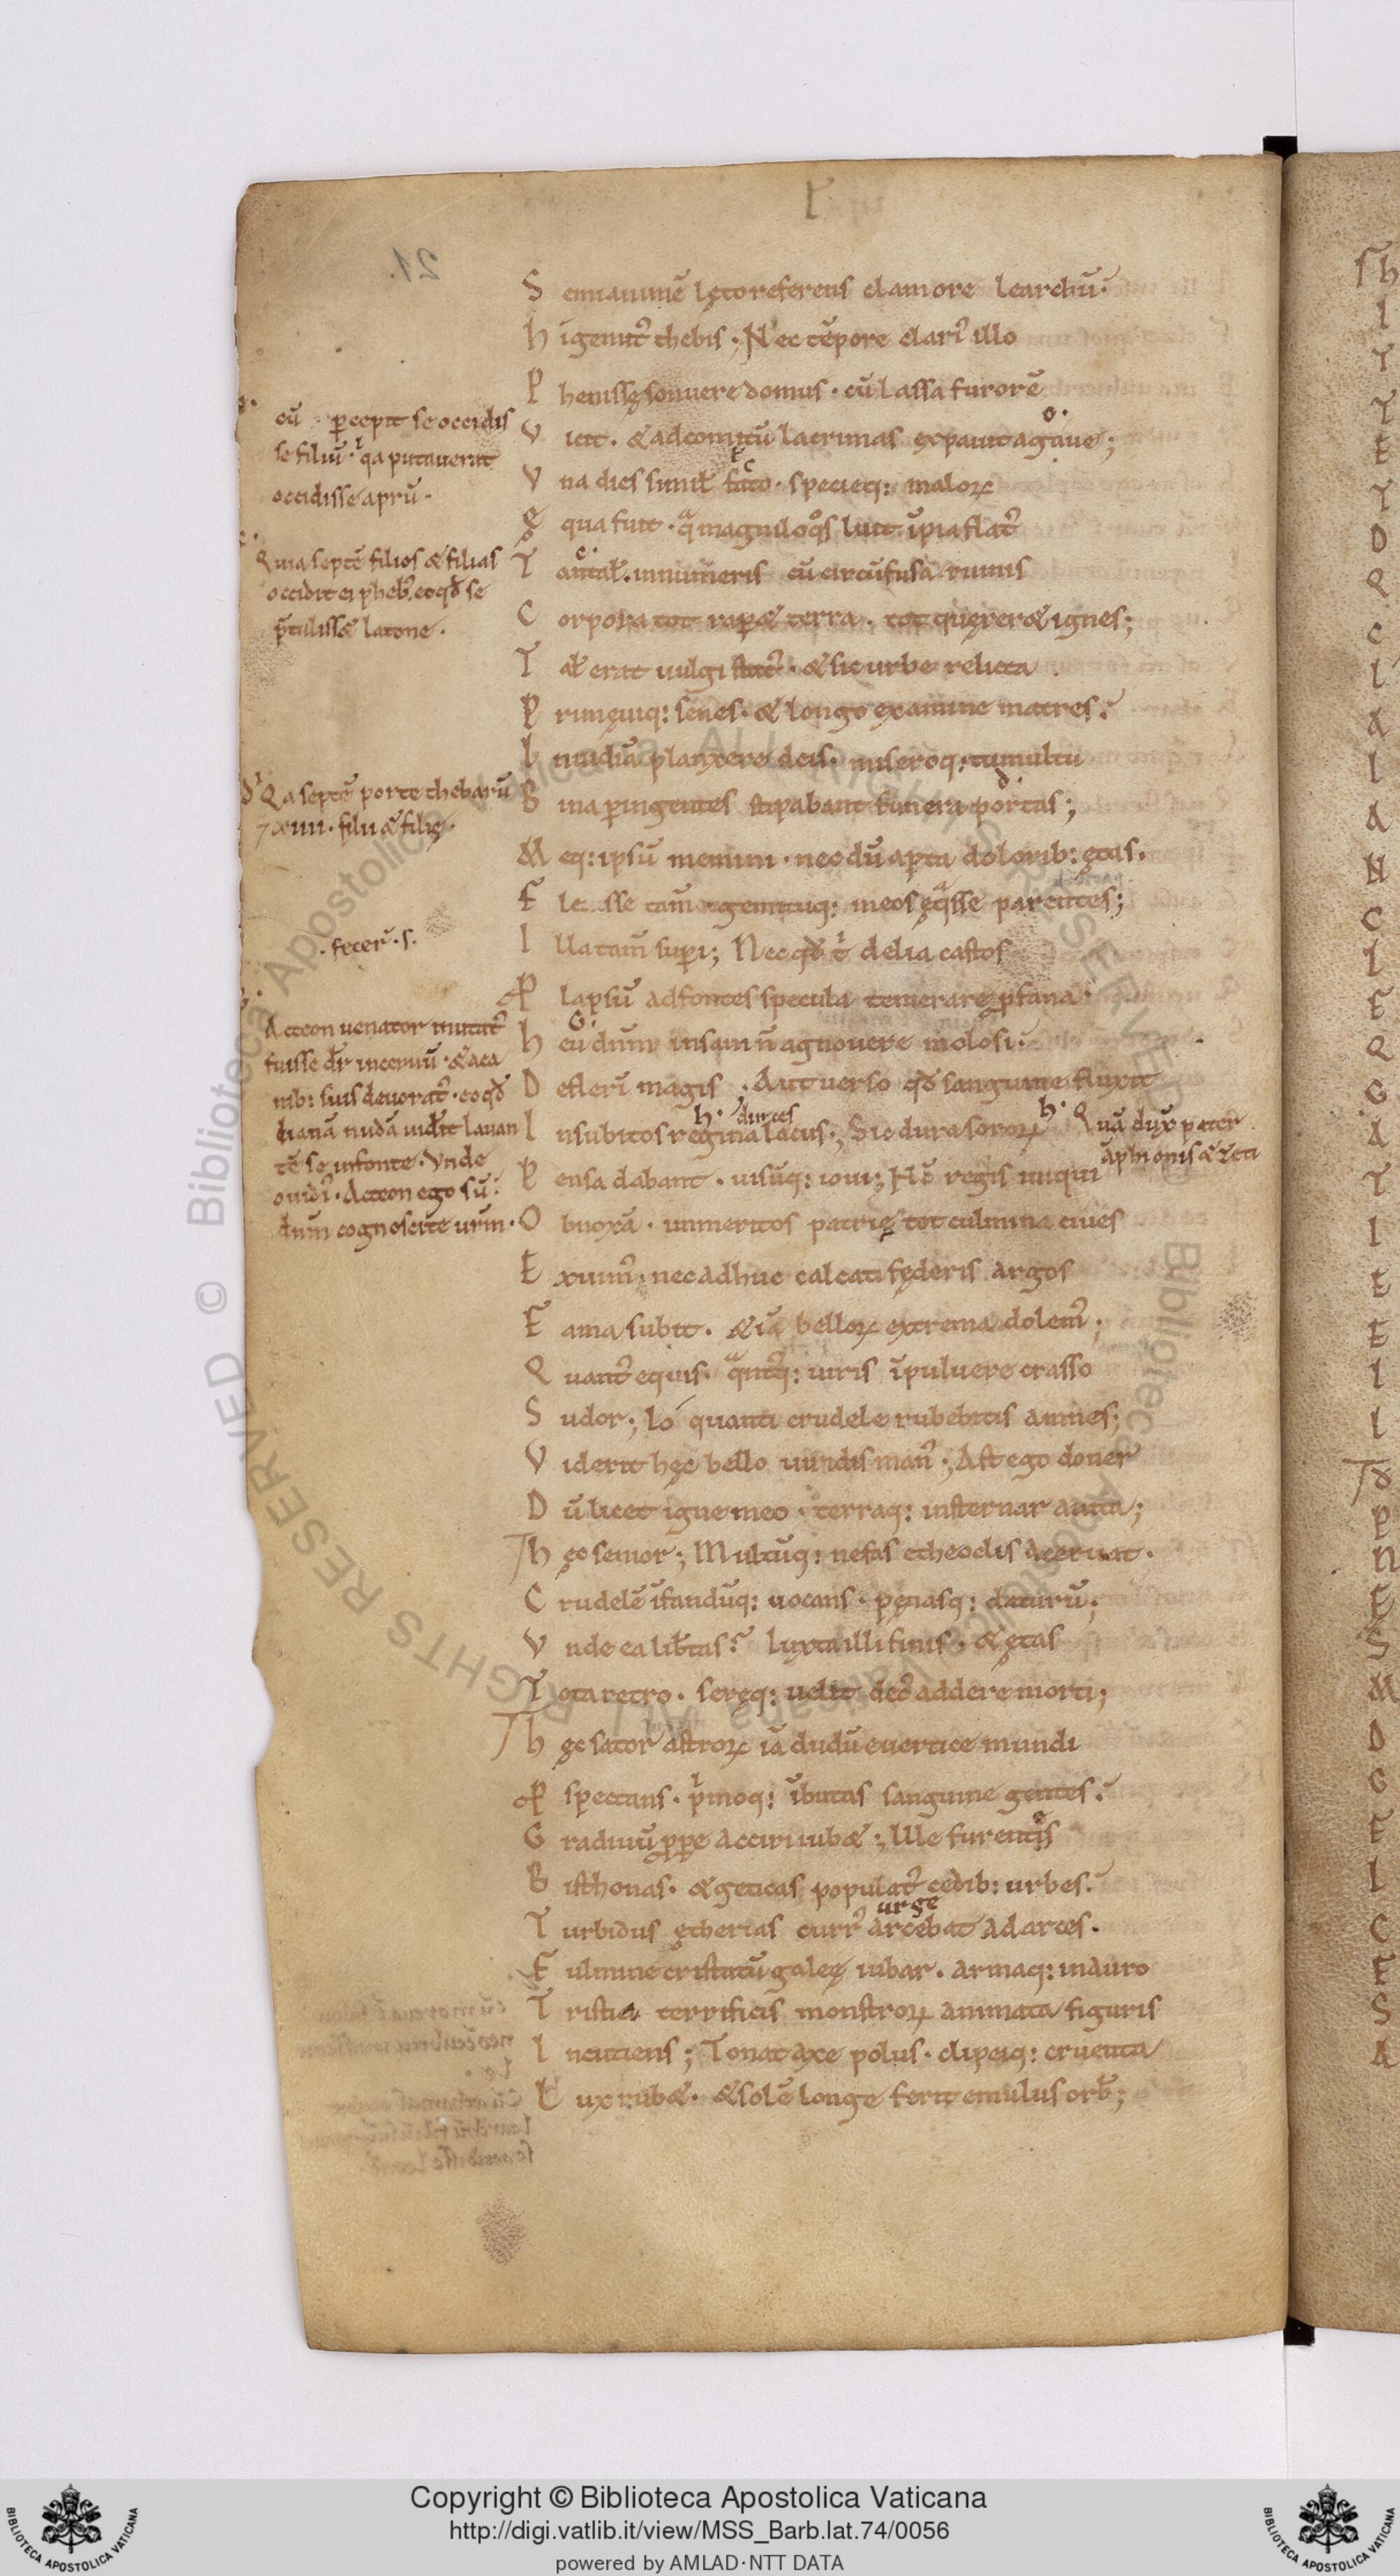 S emianimē lęto referens clamore learchū·
h i gemit᷒ thebis ; Nec tēpore clari᷒ illo
P henissę sonuere domus · cū lassa furorē
V icit · & ad comitū lacrimas expauit agaue ;
V na dies similꝭ facto · specieq: maloꝝ
Ę qua fuit · q̄ magniloq̊s luit īpia flat᷒
T antalꝭ · innumeris cū circūfusa ruinis
C orpora tot rap&̄ terra · tot quęrer& ignes ;
T alꝭ erat uulgi stat᷒ · & sic urbe relicta
P rimęuiq: senes · & longo examine matres
I nuidiā planxere deis · miseroq: tumultu
B ina p ingentes stipabant funera portas ;
M eq: ipsū memini · necdū apta dolorib: ętas ·
F lesse tam̄ gemituq: meos ęq̄sse parentes ;
I lla tam̄ supi ; Nec qđ t̄ delia castos
P lapsū ad fontes specula temerare pfana
h eu dn̄m insani n̄ agnouere molosi
D efleri᷒ magis · Aut uerso qđ sanguine fluxit
I n subitos regina lacus ; Sic dura soroꝝ
P ensa dabant · uisūq: ioui ; Nc̄ regis iniqui
O bnoxā · immeritos patrię tot culmina ciues
E xuim᷒ ; nec adhuc calcati fęderis argos
F ama subit · & iā belloꝝ extrema dolem᷒ ;
Q uant᷒ equis · q̄nt᷒q: uiris ī puluere crasso
S udor ; Ió quanti crudele rubebitis amnes ;
V iderit hęc bello uiridis man᷒ ; Ast ego doner
D ū licet igne meo · terraq: insternar auita ;
h ęc senior ; Multūq: nefas etheoclis aceruat ·
C rudelē īfandūq: uocans · pęnasq: daturū ;
V nde ea libtas ? Iuxta illi finis · & ętas
T ota retro · seręq: uelit dec᷒ addere morti ;
h ęc sator astroꝝ iā dudū e uertice mundi
P spectans · p̄moq: ībutas sanguine gentes
G radiuū ppe acciri iub& ; Ille furentis
B isthonas · & geticas populat᷒ cedib: urbes
urge
T urbidus ętherias curr᷒ arcebat ad arces ·
F ulmine cristatū galeę iubar · armaq: in auro
T ristia terrificis monstroꝝ animata figuris
I ncutiens ; Tonat axe polus · clipeiq: cruenta
L ux rub& · & solē longe ferit emulus orbꝭ ;
cū pcepit se occidis
se filiū · qa putauerat
occidisse aprū ·
Quia septē filios & filias
occidit ei pheb᷒ eo qđ se
p̄tulisse latone ·
Qa septē porte thebarū
7 xiiii · filii & filię ·
· fecer̄ · s ·
Acteon uenator mutat᷒
fuisse dr̄ in ceruū · & a ca
nib: suis deuorat᷒ · eo qđ
dianā nudā uidit lauan
tē se in fonte · Vnde
ouidi᷒ · Acteon ego sū
dn̄m cognoscite urm̄ ·
dirces
Quā dux pater
āphionis & zeti
Copyright © Biblioteca Apostolica Vaticana
http://digi.vatlib.it/view/MSS_Barb.lat.74/0056
powered by AMLAD·NTT DATA